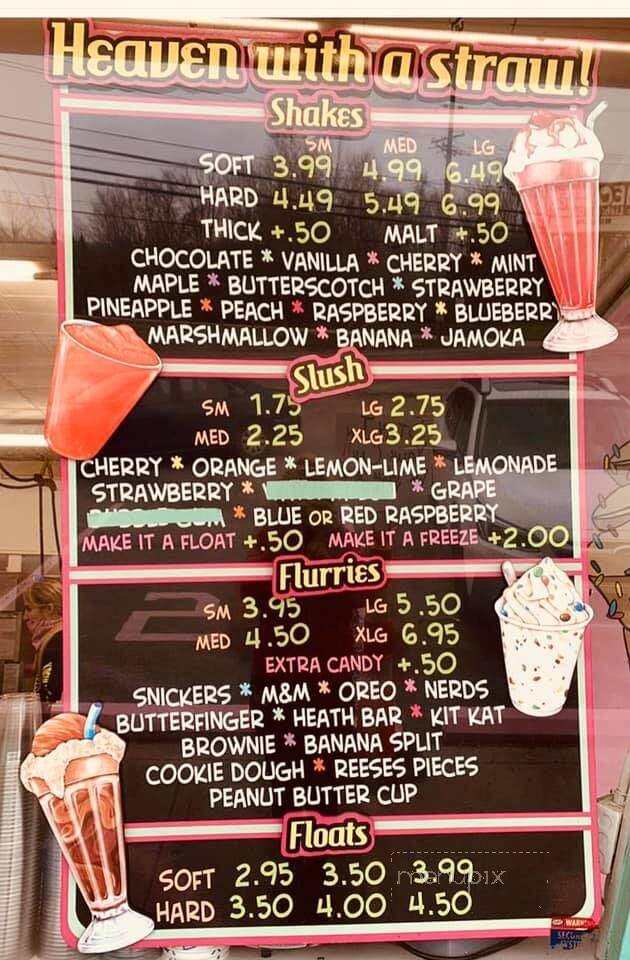 Heaven with a straw!
Shakes
SM MED LG
SOFT 3.99 4.99 6.49
HARD 4.49 5.49 6.99
THICK +.50 MALT +.50
CHOCOLATE * VANILLA * CHERRY * MINT
MAPLE * BUTTERSCOTCH * STRAWBERRY
PINEAPPLE * PEACH * RASPBERRY * BLUEBERRY
MARSHMALLOW * BANANA * JAMOKA
Slush
SM 1.75 LG 2.75
MED 2.25 XLG 3.25
CHERRY * ORANGE * LEMON-LIME * LEMONADE
STRAWBERRY * * GRAPE
* BLUE OR RED RASPBERRY
MAKE IT A FLOAT +.50 MAKE IT A FREEZE +2.00
Flurries
SM 3.95 LG 5.50
MED 4.50 XLG 6.95
EXTRA CANDY +.50
SNICKERS * M&M * OREO * NERDS
BUTTERFINGER * HEATH BAR * KIT KAT
BROWNIE * BANANA SPLIT
COOKIE DOUGH * REESES PIECES
PEANUT BUTTER CUP
Floats
SOFT 2.95 3.50 3.99
HARD 3.50 4.00 4.50
menupix